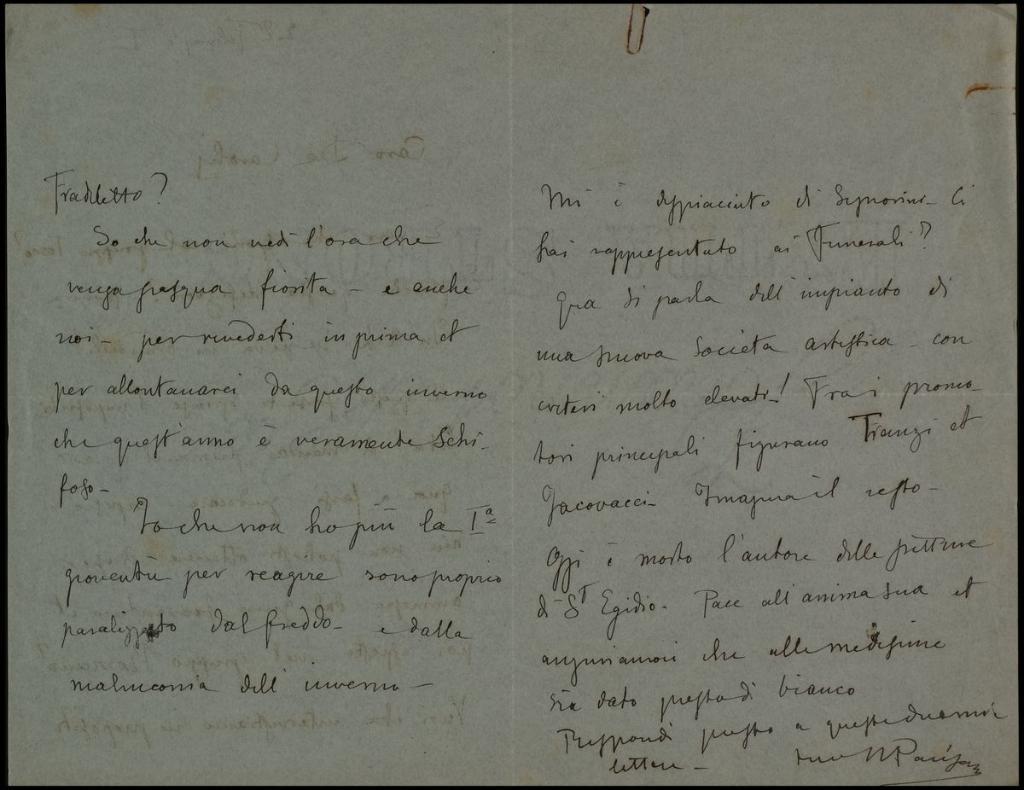 Fradeletto?
So che non vedi l'ora che
venga pasqua fiorita – e anche
noi – per rivederti in prima et
per allontanarci da questo inverno
che quest'anno è veramente schi-
foso –
Io che non ho più la Iª
gioventù per reagire sono proprio
paralizzato dal freddo – e dalla
malinconia dell'inverno –
Mi è dispiaciuto di Signorini – Ci
hai rappresentato ai Funerali?
Qua si parla dell'impianto di
una nuova Società artistica – con
criteri molto elevati! Fra i promo-
tori principali figurano Franzi et
Jacovacci – Imagina il resto –
Oggi è morto l'autore delle pitture
di S.T Egidio – Pace all'anima sua et
auguriamoci che alle medesime
sia dato presto di bianco
Rispondi presto a queste due mie
lettere –
tuo